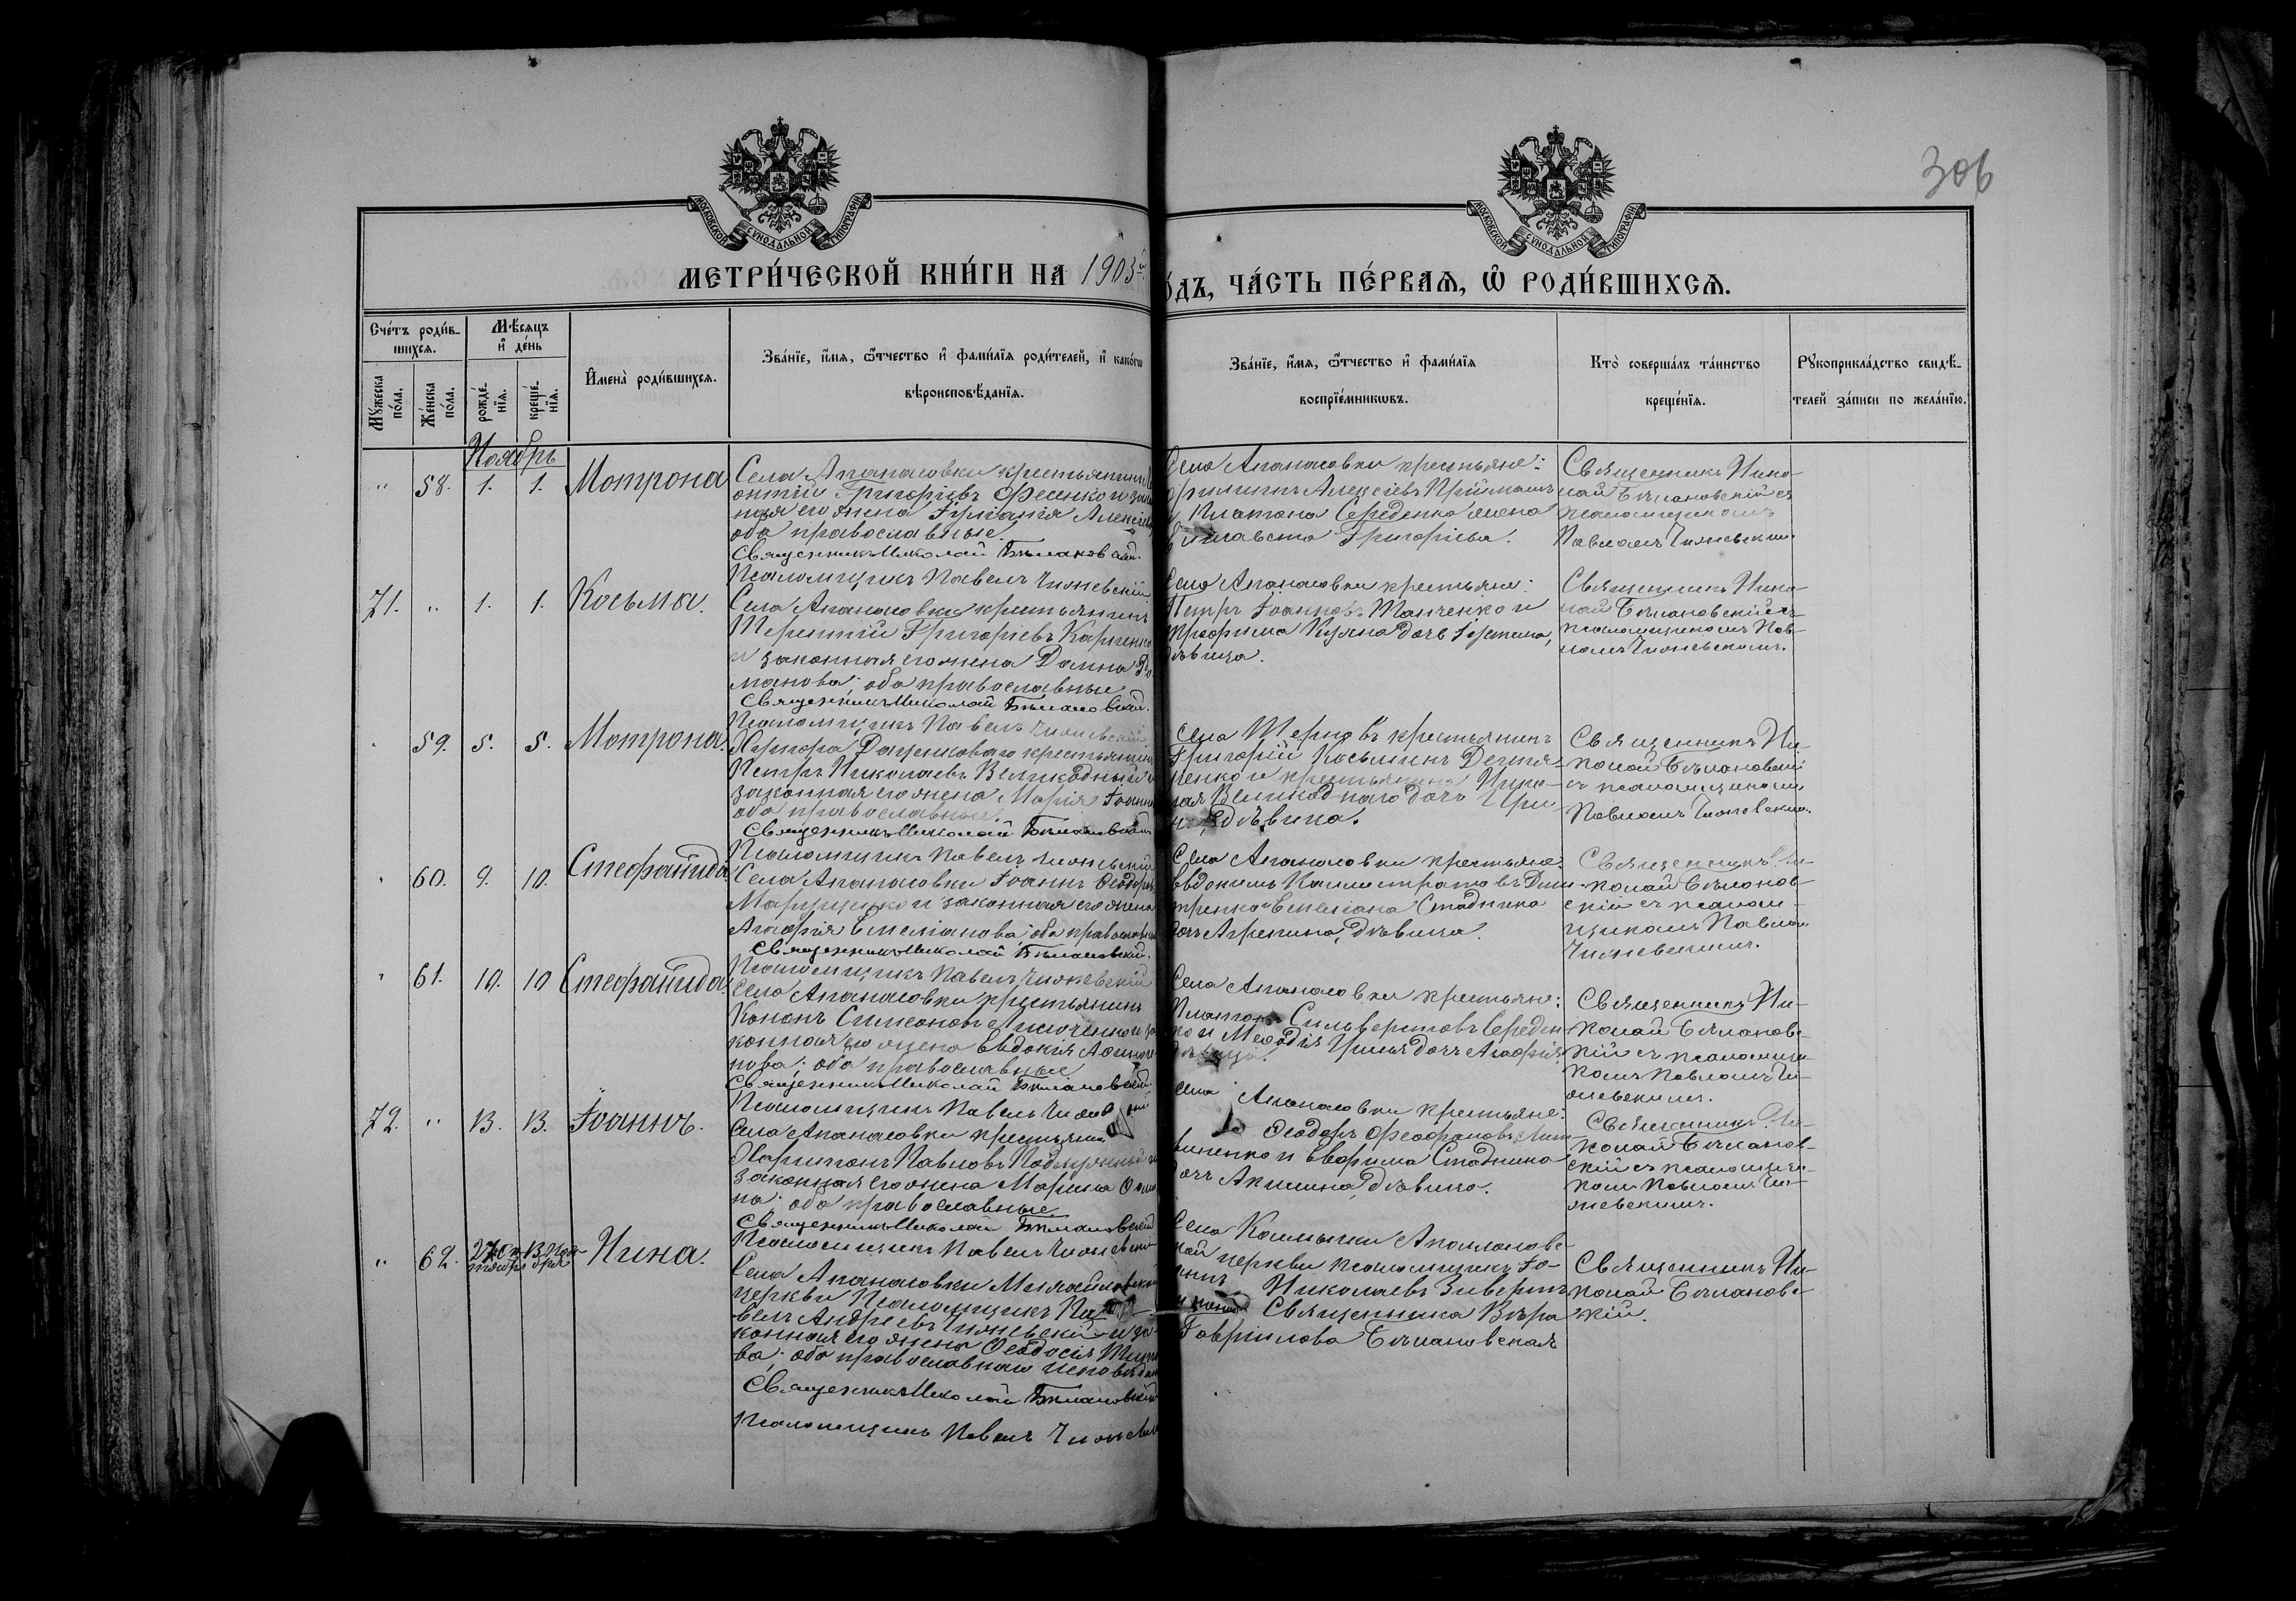 306
МОСКОВСКОЙ СУНОДАЛЬНОЙ ТИПОГРАФІИ
МОСКОВСКОЙ СУНОДАЛЬНОЙ ТИПОГРАФІИ
МЕТРИ́ЧЕСКОЙ КНИ́ГИ НА 1903й
О́ДЪ, ЧА́СТЬ ПЕ́РВАѦ, Ѡ҆ РОДИ́ВШИХСѦ.
Сче́тъ роди́в-
шихсѧ.
Мꙋ́жеска по́ла.
Же́нска по́ла.
Мѣ́сѧцъ и҆ де́нь
рожде́-
нїѧ.
креще́-
нїѧ.
И҆мена̀ роди́вшихсѧ.
Зва́нїе, и҆́мѧ, ѻ҆́тчество и҆ фами́лїѧ роди́телей, и҆ како́гѡ
вѣроисповѣ́данїѧ.
Зва́нїе, и҆́мѧ, ѻ҆́тчество и҆ фами́лїѧ
воспрїе́мникѡвъ.
Кто̀ соверша́лъ та́инство
креще́нїѧ.
Рꙋкоприкла́дство свидѣ́-
телей за́писи по жела́нїю.
Ноябрь
" 58. 1. 1. Мотрона
Села Апанасовки крестьянинъ
Григоріевъ Фесенко и
его жена Іуліанія Алексѣева
оба православные.
Священникъ Николай Бѣлановскій.
Псаломщикъ Павелъ Чижевскій
Села Апанасовки крестьяне:
Алексіевъ Приймакъ
и Платона Середенко жена
Елисавета Григоріева.
Священникъ Нико-
лай Бѣлановскій съ
псаломщикомъ
Павломъ Чижевскимъ.
71. " 1. 1. Косьма.
Села Апанасовки крестьянинъ
Терентій Григоріевъ Карпенко
и законная его жена Домна
манова; оба православные
Священникъ Николай Бѣлановскій.
Псаломщикъ Павелъ Чижевскій
Села Апанасовки крестьяне:
Петръ Іоанновъ Танченко и
дочь
дѣвица.
Священникъ Нико-
лай Бѣлановскій съ
псаломщикомъ Пав-
ломъ Чижевскимъ.
" 59. 5. 5. Мотрона.
Хутора Даценковаго крестьянинъ
Петръ Николаевъ Великодный и
законная его жена Марія
оба православные.
Священникъ Николай Бѣлановскій
Псаломщикъ Павелъ Чижевскій
Села Терновъ крестьянинъ
Григорій Косьминъ Дегтя-
ренко и крестьянина Нико-
лая Великоднаго дочь Ири-
на, дѣвица.
Священникъ Ни-
колай Бѣлановскій
съ псаломщикомъ
Павломъ Чижевскимъ.
" 60. 9. 10. Стефанида
Села Апанасовки Іоаннъ Ѳеодоровъ
Марущенко и законная его жена
Агафія Емеліанова; оба православные
Священникъ Николай Бѣлановскій.
Псаломщикъ Павелъ Чижевскій
Села Апанасовки крестьяне:
Евдокимъ Каллистратовъ Дми-
тренко и Емеліана Стадника
дочь Агрепина, дѣвица.
Священникъ Ни-
колай Бѣланов-
скій съ псалом-
щикомъ Павломъ
Чижевскимъ.
" 61. 10. 10 Стефанида
Села Апанасовки крестьянинъ
Кононъ Симеоновъ и за-
конная его жена Евдокія
нова; оба православные
Священникъ Николай Бѣлановскій
Псаломщикъ Павелъ
Села Апанасовки крестьяне:
Платонъ Сильверстовъ Середен-
ко и Меѳодія дочь Агафія
дѣвица.
Священникъ Ни-
колай Бѣланов-
скій съ псаломщи-
комъ Павломъ Чи-
жевскимъ.
72. " 13. 13. Іоаннъ.
Села Апанасовки крестьянинъ
Харитонъ Павловъ
законная его жена Марина
на; оба православные
Священникъ Николай Бѣлановскій
Псаломщикъ Павелъ Чижевскій
Села Апанасовки крестьяне:
Ѳеодоръ Феофановъ Лит-
виненко и Стадника
дочь Акилина, дѣвица.
Священникъ Ни-
колай Бѣланов-
скій съ псаломщи-
комъ Павломъ Чи-
жевскимъ.
" 62. 27 Октября 13 Ноября Нина.
Села Апанасовки Михайловской
церкви Псаломщикъ Па-
велъ Андреевъ Чижевскій и за-
конная его жена Ѳеодосія
ва; оба православнаго исповѣданія
Священникъ Николай Бѣлановскій
Псаломщикъ Павелъ Чижевскій
Села Калмычки
кой церкви псаломщикъ Іо-
аннъ Николаевъ Зиверинъ
и жена Священника Вѣра
Гавріилова Бѣлановская
Священникъ Ни-
колай Бѣланов-
скій.